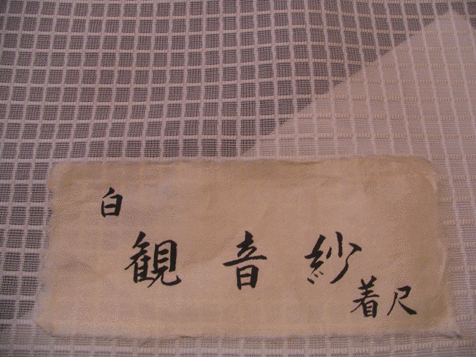 白
観音紗
着尺